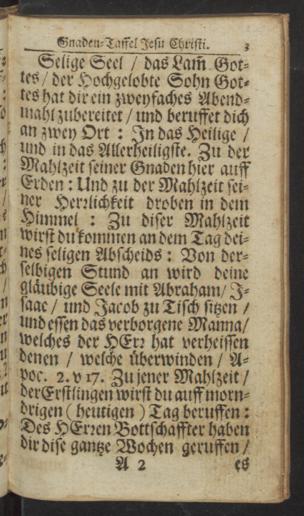 Gnaden-Taffel Jesu Christi. 3
Selige Seel / das Lam̄ Got-
tes / der Hochgelobte Sohn Got-
tes hat dir ein zweyfaches Abend-
mahl zubereitet / und beruffet dich
an zwey Ort : In das Heilige /
und in das Allerheiligste. Zu der
Mahlzeit seiner Gnaden hier auff
Erden : Und zu der Mahlzeit sei-
ner Herzlichkeit droben in dem
Himmel : Zu diser Mahlzeit
wirst du kommen an dem Tag dei-
nes seligen Abscheids : Von der-
selbigen Stund an wird deine
gläubige Seele mit Abraham / I-
saac / und Jacob zu Tisch sitzen /
und essen das verborgene Manna /
welches der HErz hat verheissen
denen / welche überwinden / A-
poc. 2. v 17. Zu jener Mahlzeit /
der Erstlingen wirst du auff morn-
drigen ( heutigen ) Tag beruffen :
Des HErzen Bottschaffter haben
dir dise gantze Wochen geruffen /
A 2 es